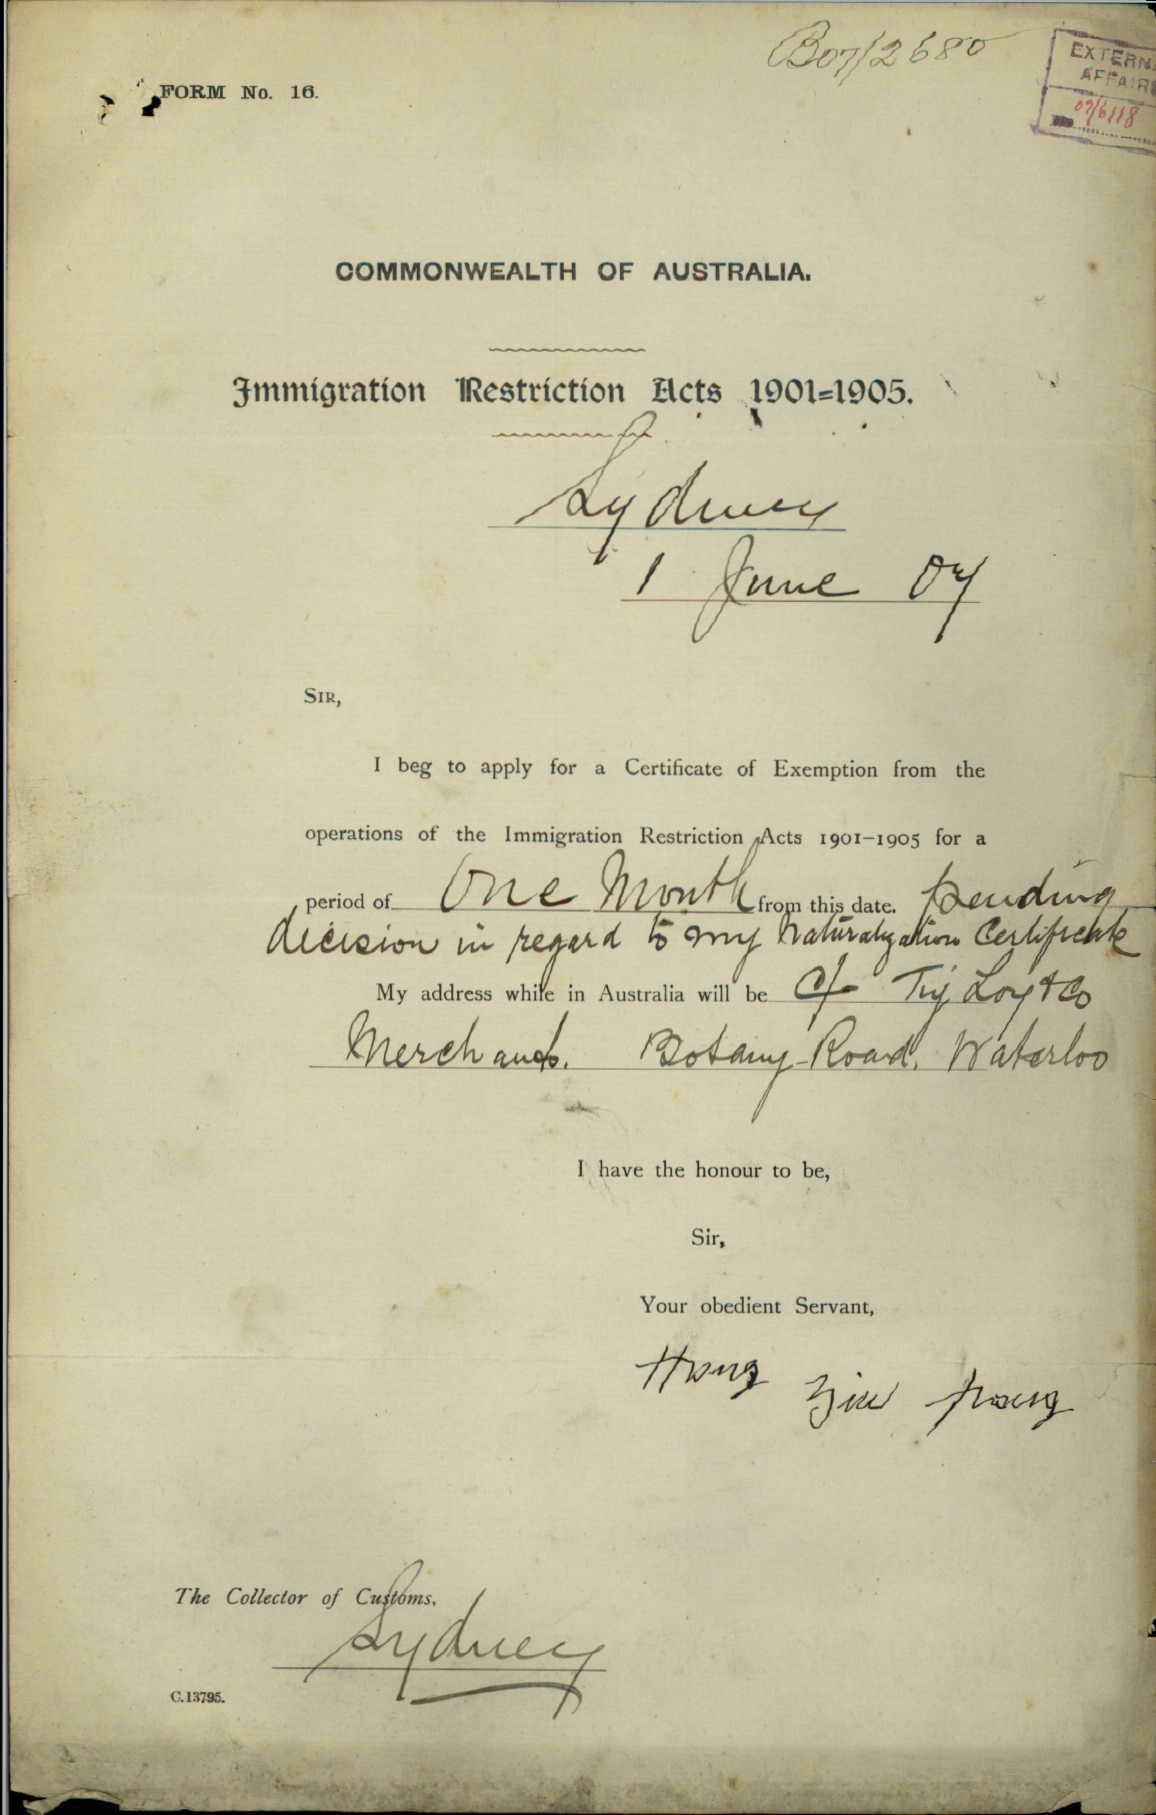 B07/2680
EXTERN
AFFAIR
07/6118
FORM No. 16.
COMMONWEALTH OF AUSTRALIA.
Immigration Restriction Acts 1901=1905.
Sydney
1 June 07
SIR,
I beg to apply for a Certificate of Exemption from the
operations of the Immigration Restriction Acts 1901–1905 for a
period of One Month from this date. pending
decision in regard to my Naturalization Certificate
My address while in Australia will be C/- Tiy Loy & Co
Merchants. Botany Road, Waterloo
I have the honour to be,
Sir,
Your obedient Servant,
The Collector of Customs,
Sydney
C.13795.